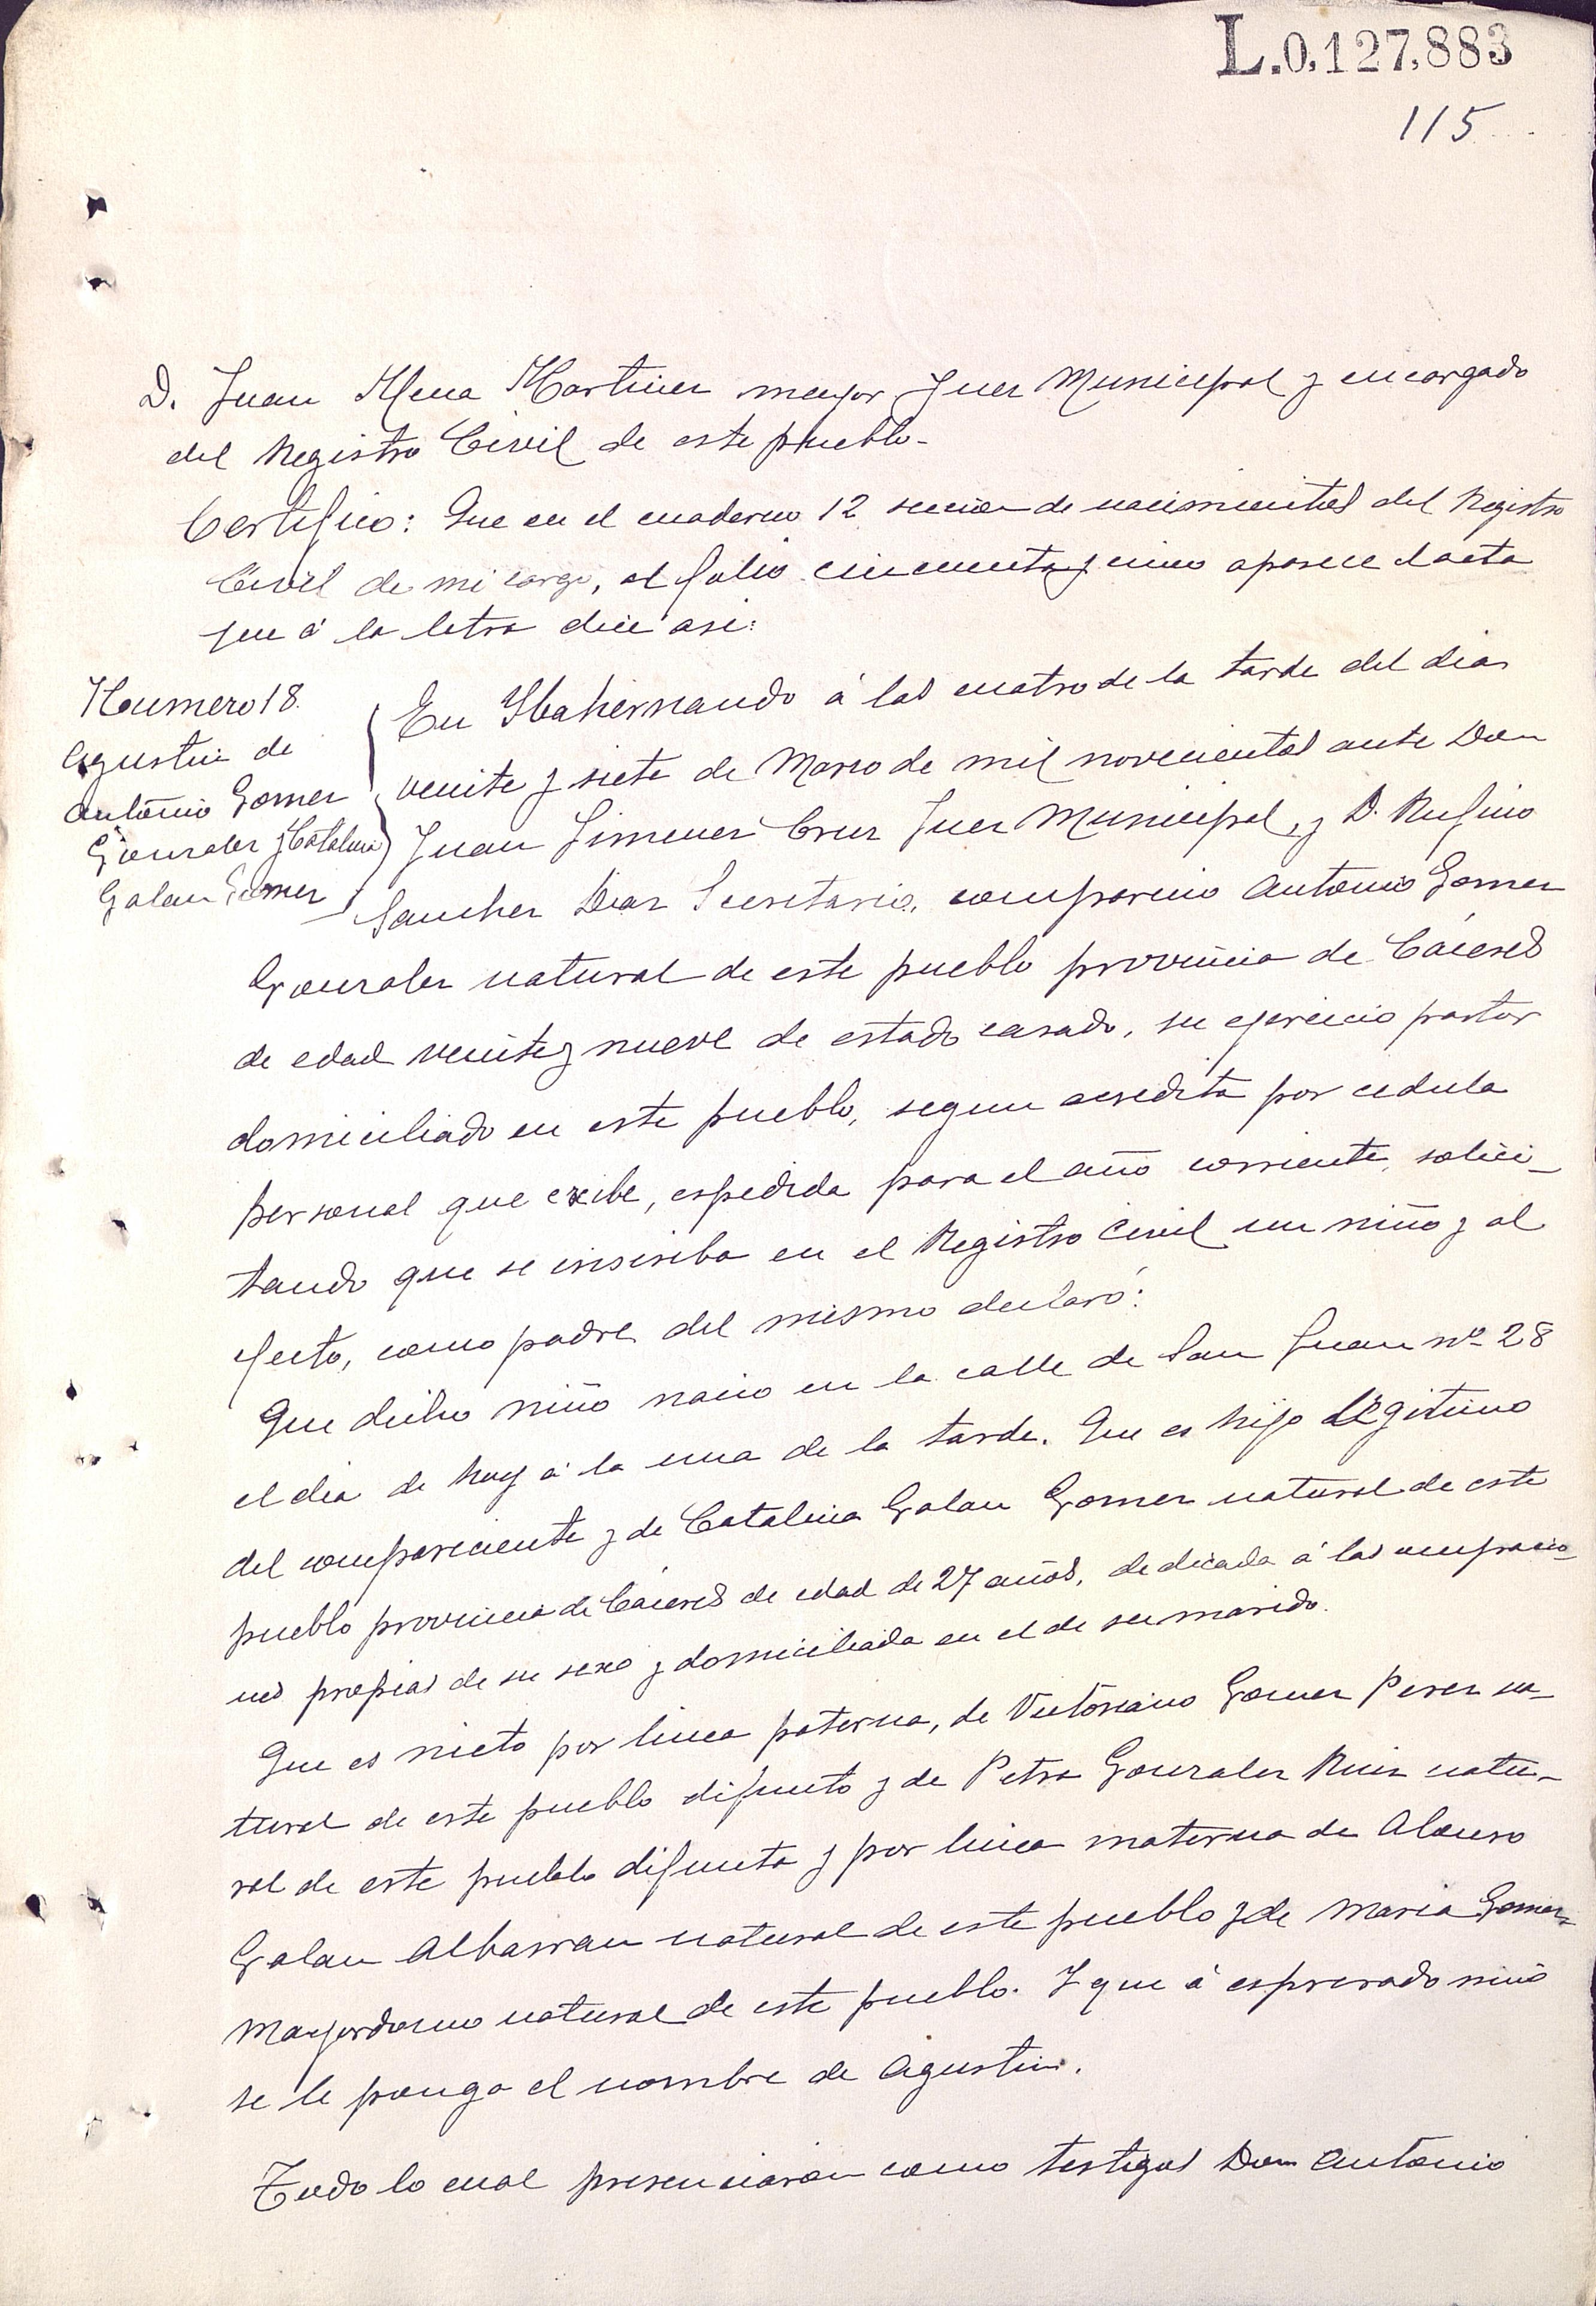 L.0,127,883
115
D. Juan Mena Martinez mayor Juez Municipal y encargado
del Registro Civil de este pueblo-
Certifico: Que en el cuaderno 12 seccion de nacimientos del Registro
Civil de mi cargo, al folio cincuenta y cinco aparece el acta
que á la letra dice asi:
Numero 18.
Agustin de
Antonio Gomez
Gonzalez y Catalina
Galan Gomez
En Ibahernando á las cuatro de la tarde del dia
veinte y siete de Marzo de mil novecientos ante Don
Juan Jimenez Cruz Juez Municipal, y D. Rufino
Sanchez Diaz Secretario, comparecio Antonio Gomez
Gonzalez natural de este pueblo provincia de Cáceres
de edad veinte y nueve de estado casado, su ejercicio pastor
domiciliado en este pueblo, segun acredita por cedula
personal que exibe, espedida para el año corriente, solici-
tando que se inscriba en el Registro Civil un niño y al
efecto, como padre del mismo declaró:
Que dicho niño nacio en la calle de San Juan nº 28
el dia de hoy á la una de la tarde. Que es hijo legitimo
del compareciente y de Catalina Galan Gomez natural de este
pueblo provincia de Cáceres de edad de 27 años, dedicada á las ocupacio-
nes propias de su sexo y domiciliada en el de su marido.
Que es nieto por linea paterna, de Victoriano Gomez Perez na-
tural de este pueblo difunto y de Petra Gonzalez Ruiz natu-
ral de este pueblo difunta y por linea materna de Alonso
Galan Albarran natural de este pueblo y de Maria Gomez
Mayordomo natural de este pueblo. Y que á espresado niño
se le ponga el nombre de Agustin.
Todo lo cual presenciaron como testigos Don Antonio